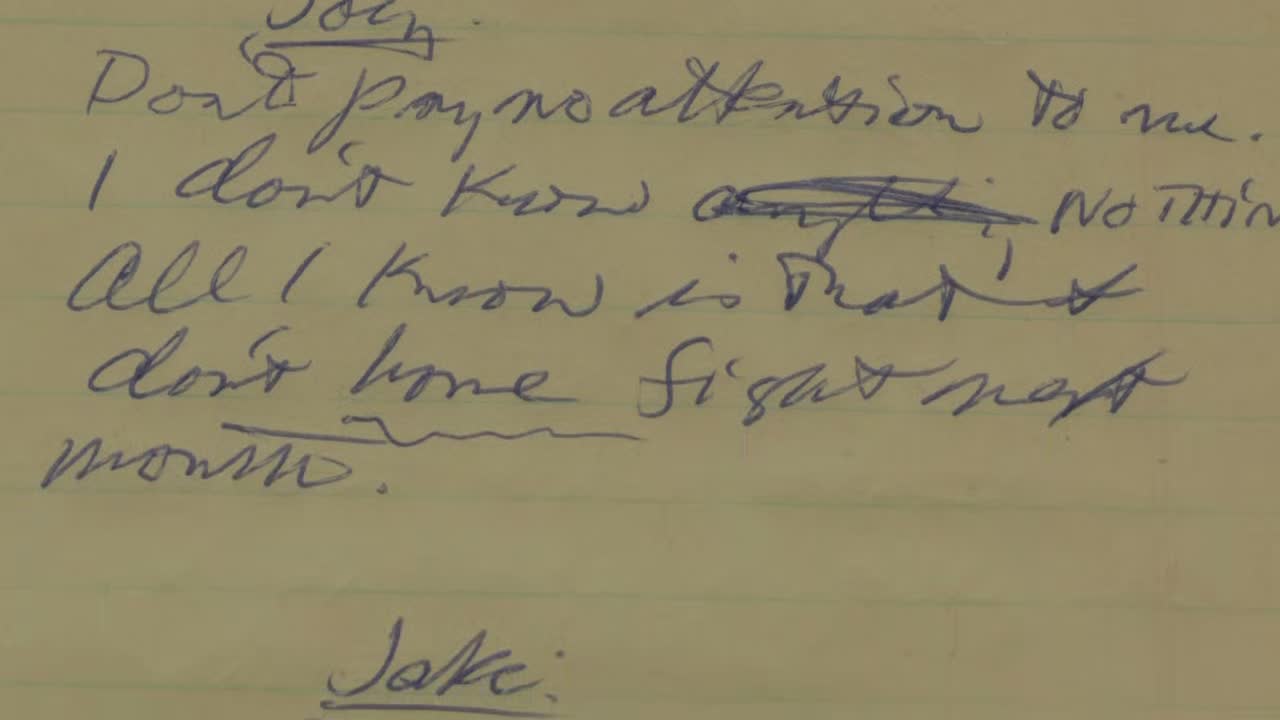 Joey.
Don't pay no attention to me.
I don't know NOTHIN
All I know is that
don't fight next
month.
Jake: